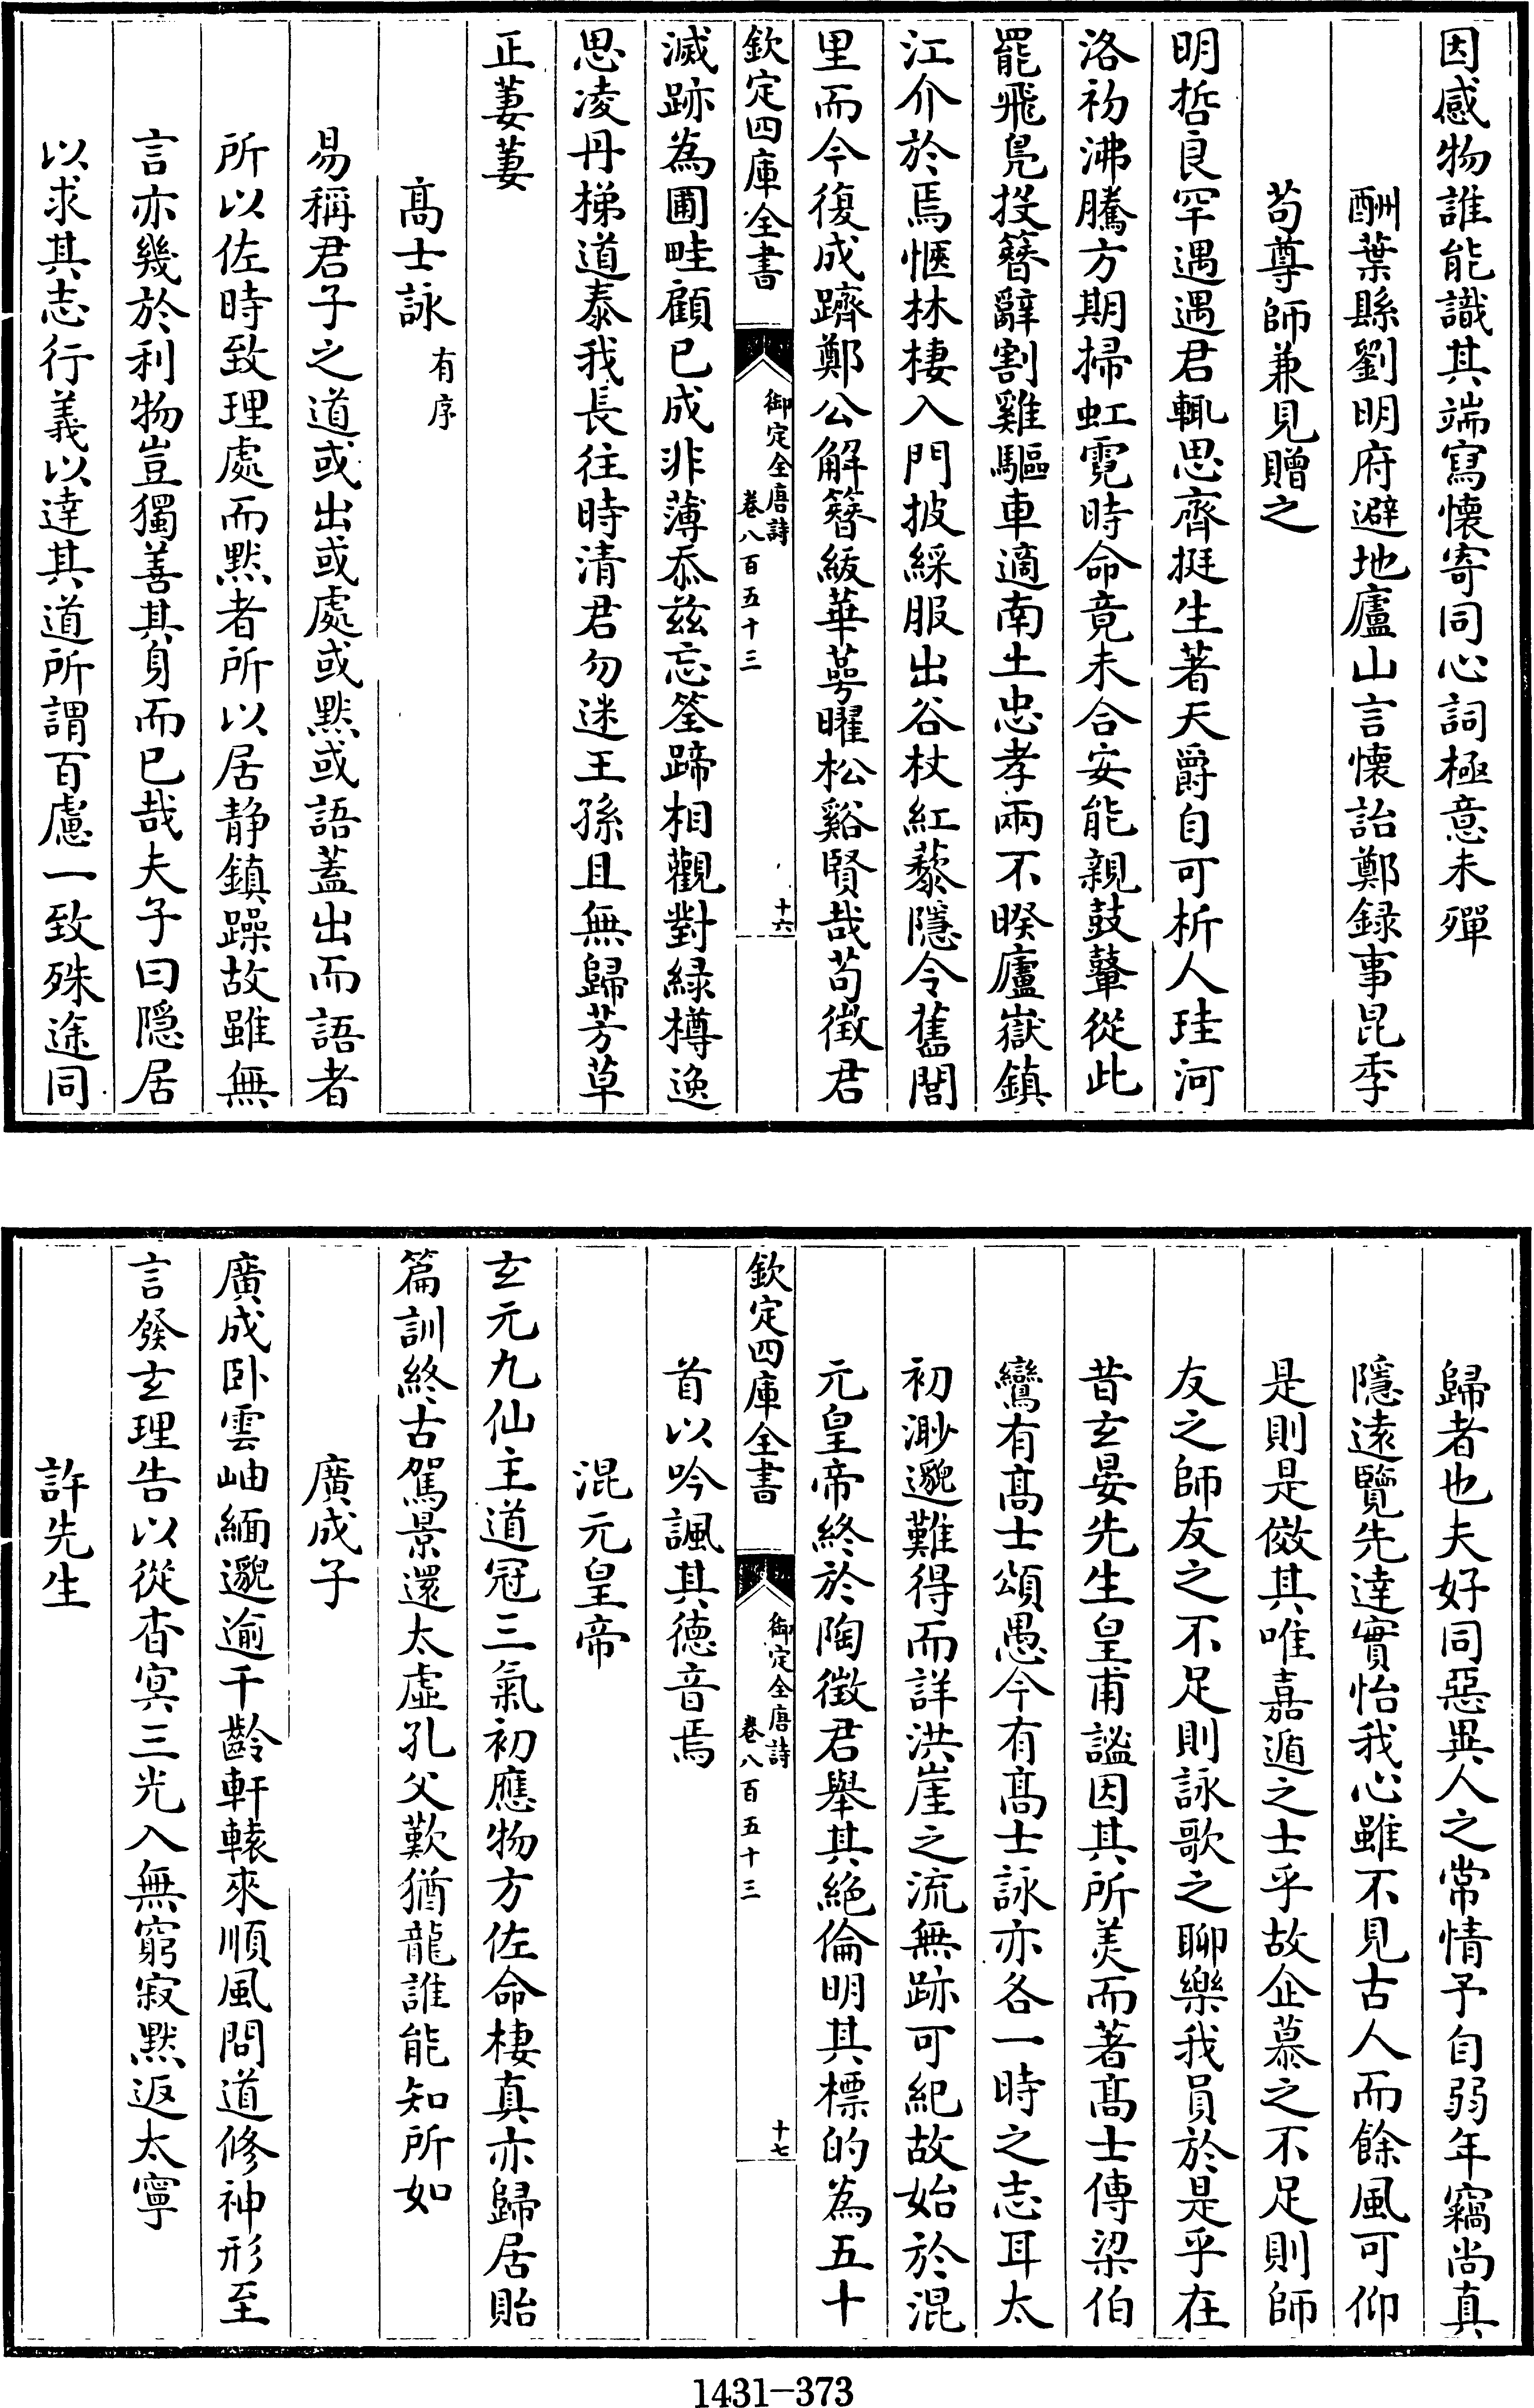 因感物誰能識其端寫懷寄同心詞極意未殫
酬葉縣劉明府避地廬山言懷詒鄭録事昆季
苟尊師兼見贈之
明哲良罕遇遇君輒思齊挺生著天爵自可析人珪河
洛初沸騰方期掃虹霓時命竟未合安能親鼓鼙從此
罷飛鳬投簪辭割雞驅車適南土忠孝兩不暌廬嶽鎮
江介於焉愜林棲入門披綵服出谷杖紅藜隱令舊閭
里而今復成躋鄭公解簪紱華萼曜松谿賢哉苟徴君
欽定四庫全書
御定全唐詩
卷八百五十三
十六
滅跡為圃畦顧已成非薄忝兹忘筌蹄相觀對緑樽逸
思凌丹梯道泰我長往時清君勿迷王孫且無歸芳草
正萋萋
髙士詠有序
易稱君子之道或出或處或黙或語蓋出而語者
所以佐時致理處而黙者所以居静鎮躁故雖無
言亦幾於利物豈獨善其身而已哉夫子曰隠居
以求其志行義以達其道所謂百慮一致殊途同
歸者也夫好同惡異人之常情予自弱年竊尚真
隱遠覽先達實怡我心雖不見古人而餘風可仰
是則是傚其唯嘉遁之士乎故企慕之不足則師
友之師友之不足則詠歌之聊樂我員於是乎在
昔玄晏先生皇甫謐因其所羙而著髙士傳梁伯
鸞有髙士頌愚今有髙士詠亦各一時之志耳太
初渺邈難得而詳洪崖之流無跡可紀故始於混
元皇帝終於陶徴君舉其絶倫明其標的為五十
欽定四庫全書
御定全唐詩
卷八百五十三
十七
首以吟諷其德音焉
混元皇帝
玄元九仙主道冠三氣初應物方佐命棲真亦歸居貽
篇訓終古駕景還太虛孔父歎猶龍誰能知所如
廣成子
廣成卧雲岫緬邈逾千齡軒轅來順風問道修神形至
言發玄理告以從杳冥三光入無窮寂黙返太寧
許先生
1431-373